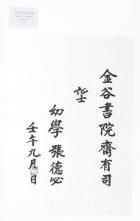 金谷書院齋有司
幼學 張德必
壬午九月 日